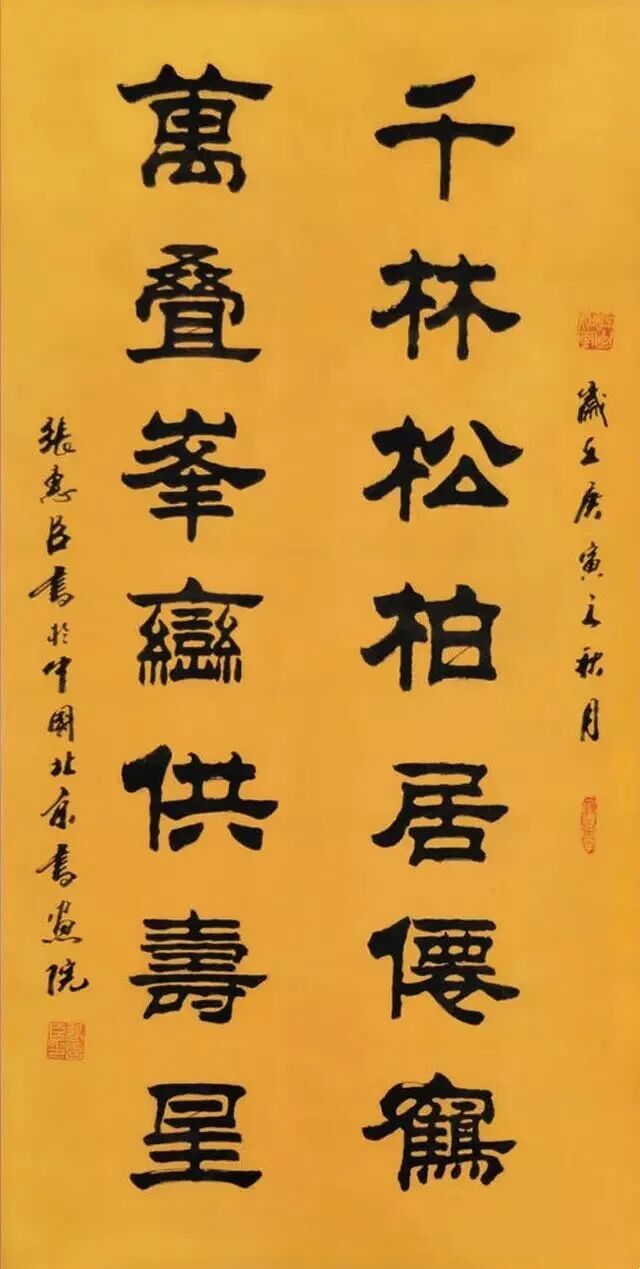 歲在庚寅之秋月
千林松柏居僊鶴
萬叠峯巒供壽星
張惠臣書於中國北京書畫院